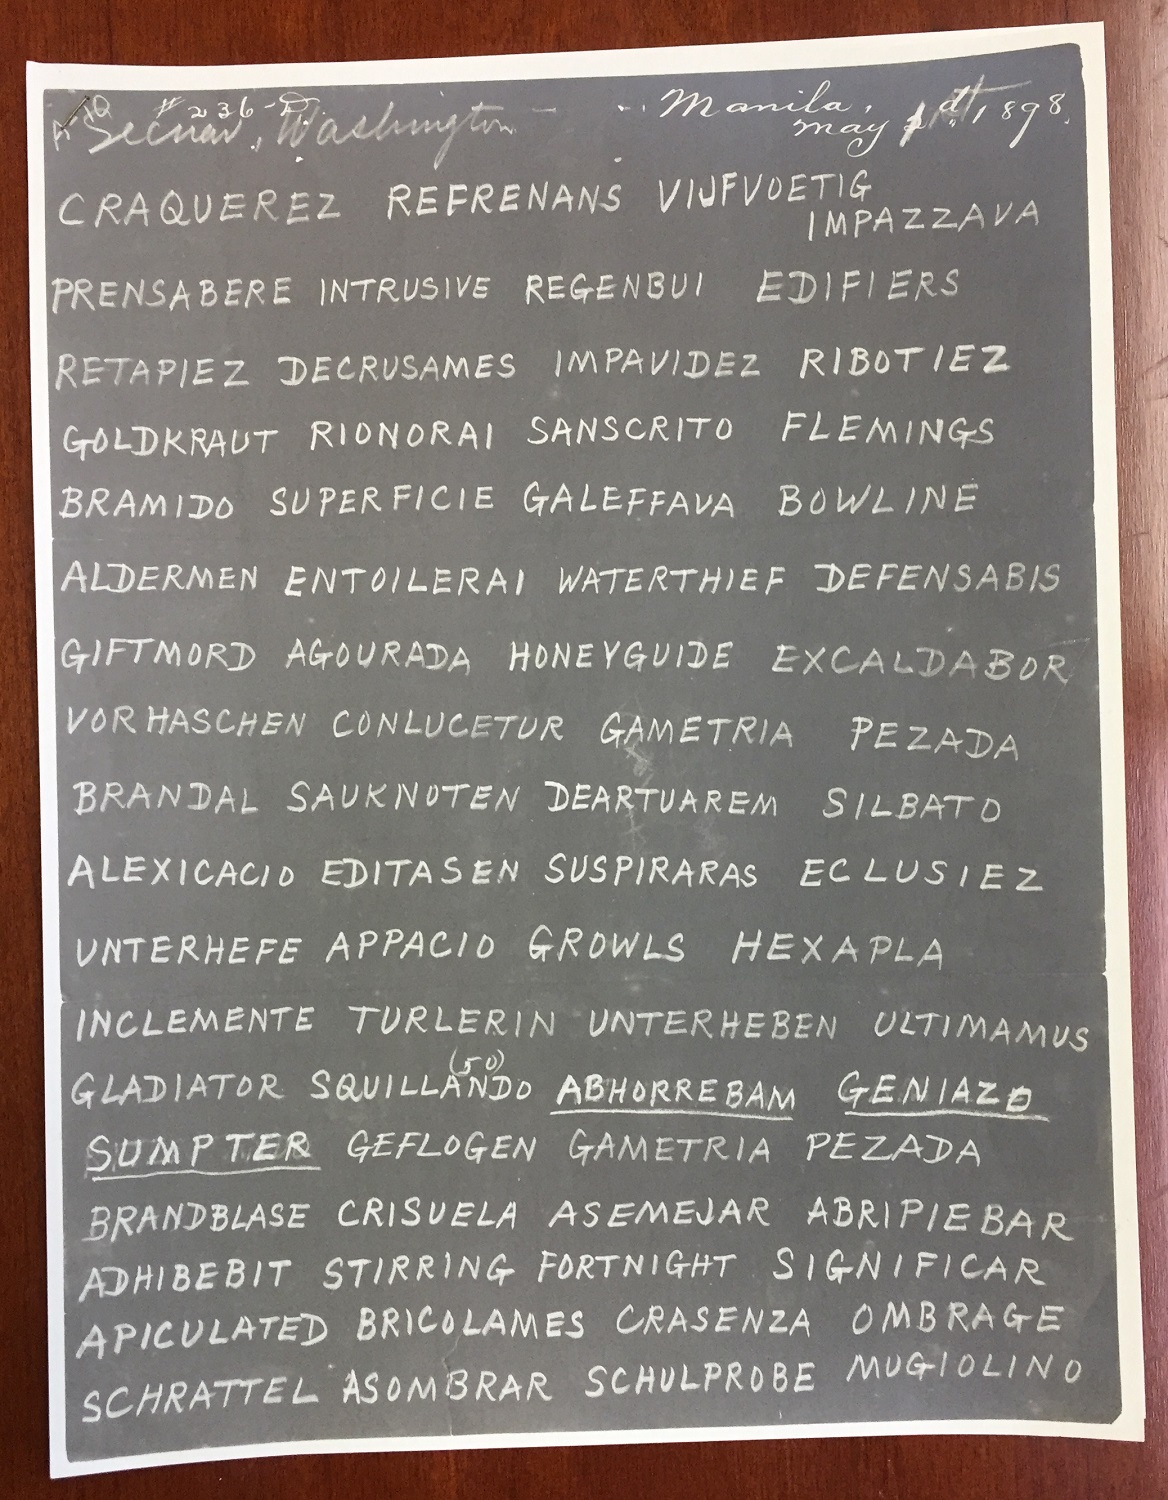 # 236-D.
Secnav, Washington Manila,
May 1898.
CRAQUEREZ REFRENANS VIJFVOETIG
IMPAZZAVA
PRENSABERE INTRUSIVE REGENBUI EDIFIERS
RETAPIEZ DECRUSAMES IMPAVIDEZ RIBOTIEZ
GOLDKRAUT RIONORAI SANSCRITO FLEMINGS
BRAMIDO SUPERFICIE GALEFFAVA BOWLINE
ALDERMEN ENTOILERAI WATERTHIEF DEFENSABIS
GIFTMORD AGOURADA HONEYGUIDE EXCALDABOR
VORHASCHEN CONLUCETUR GAMETRIA PEZADA
BRANDAL SAUKNOTEN DEARTUAREM SILBATO
ALEXICACIO EDITASEN SUSPIRARAS ECLUSIEZ
UNTERHEFE APPACIO GROWLS HEXAPLA
INCLEMENTE TURLERIN UNTERHEBEN ULTIMAMUS
(50)
GLADIATOR SQUILLANDO ABHORREBAM GENIAZO
SUMPTER GEFLOGEN GAMETRIA PEZADA
BRANDBLASE CRISUELA ASEMEJAR ABRIPIEBAR
ADHIBEBIT STIRRING FORTNIGHT SIGNIFICAR
APICULATED BRICOLAMES CRASENZA OMBRAGE
SCHRATTEL ASOMBRAR SCHULPROBE MUGIOLINO